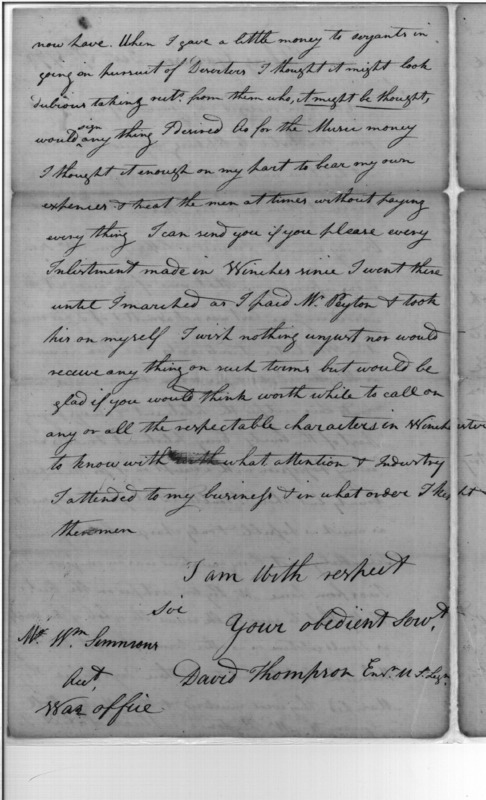 now have. When I gave a little money to serjants in
going on pursuit of Deserters I thought it might look
dubious taking rects. from them who, it might be thought,
would sign any thing I desired As for the Music money
I thought it enough on my part to bear my own
expences & treat the men at times without paying
every thing I can send you if you please every
Inlistment made in Winches since I went there
until I marched as I paid Mr. Peyton & took
his on myself I wish nothing unjust nor would
receive any thing on such terms but would be
glad if you would think worth while to call on
any or all the respectable characters in Winchester
to know with what attention & Industry
I attended to my business & in what order I kept
the men
I am With respect
Sir
Your obedient Servt.
Mr. Wm. Simmons
David Thompson Ensn. U S. Legn.
Act.
War office